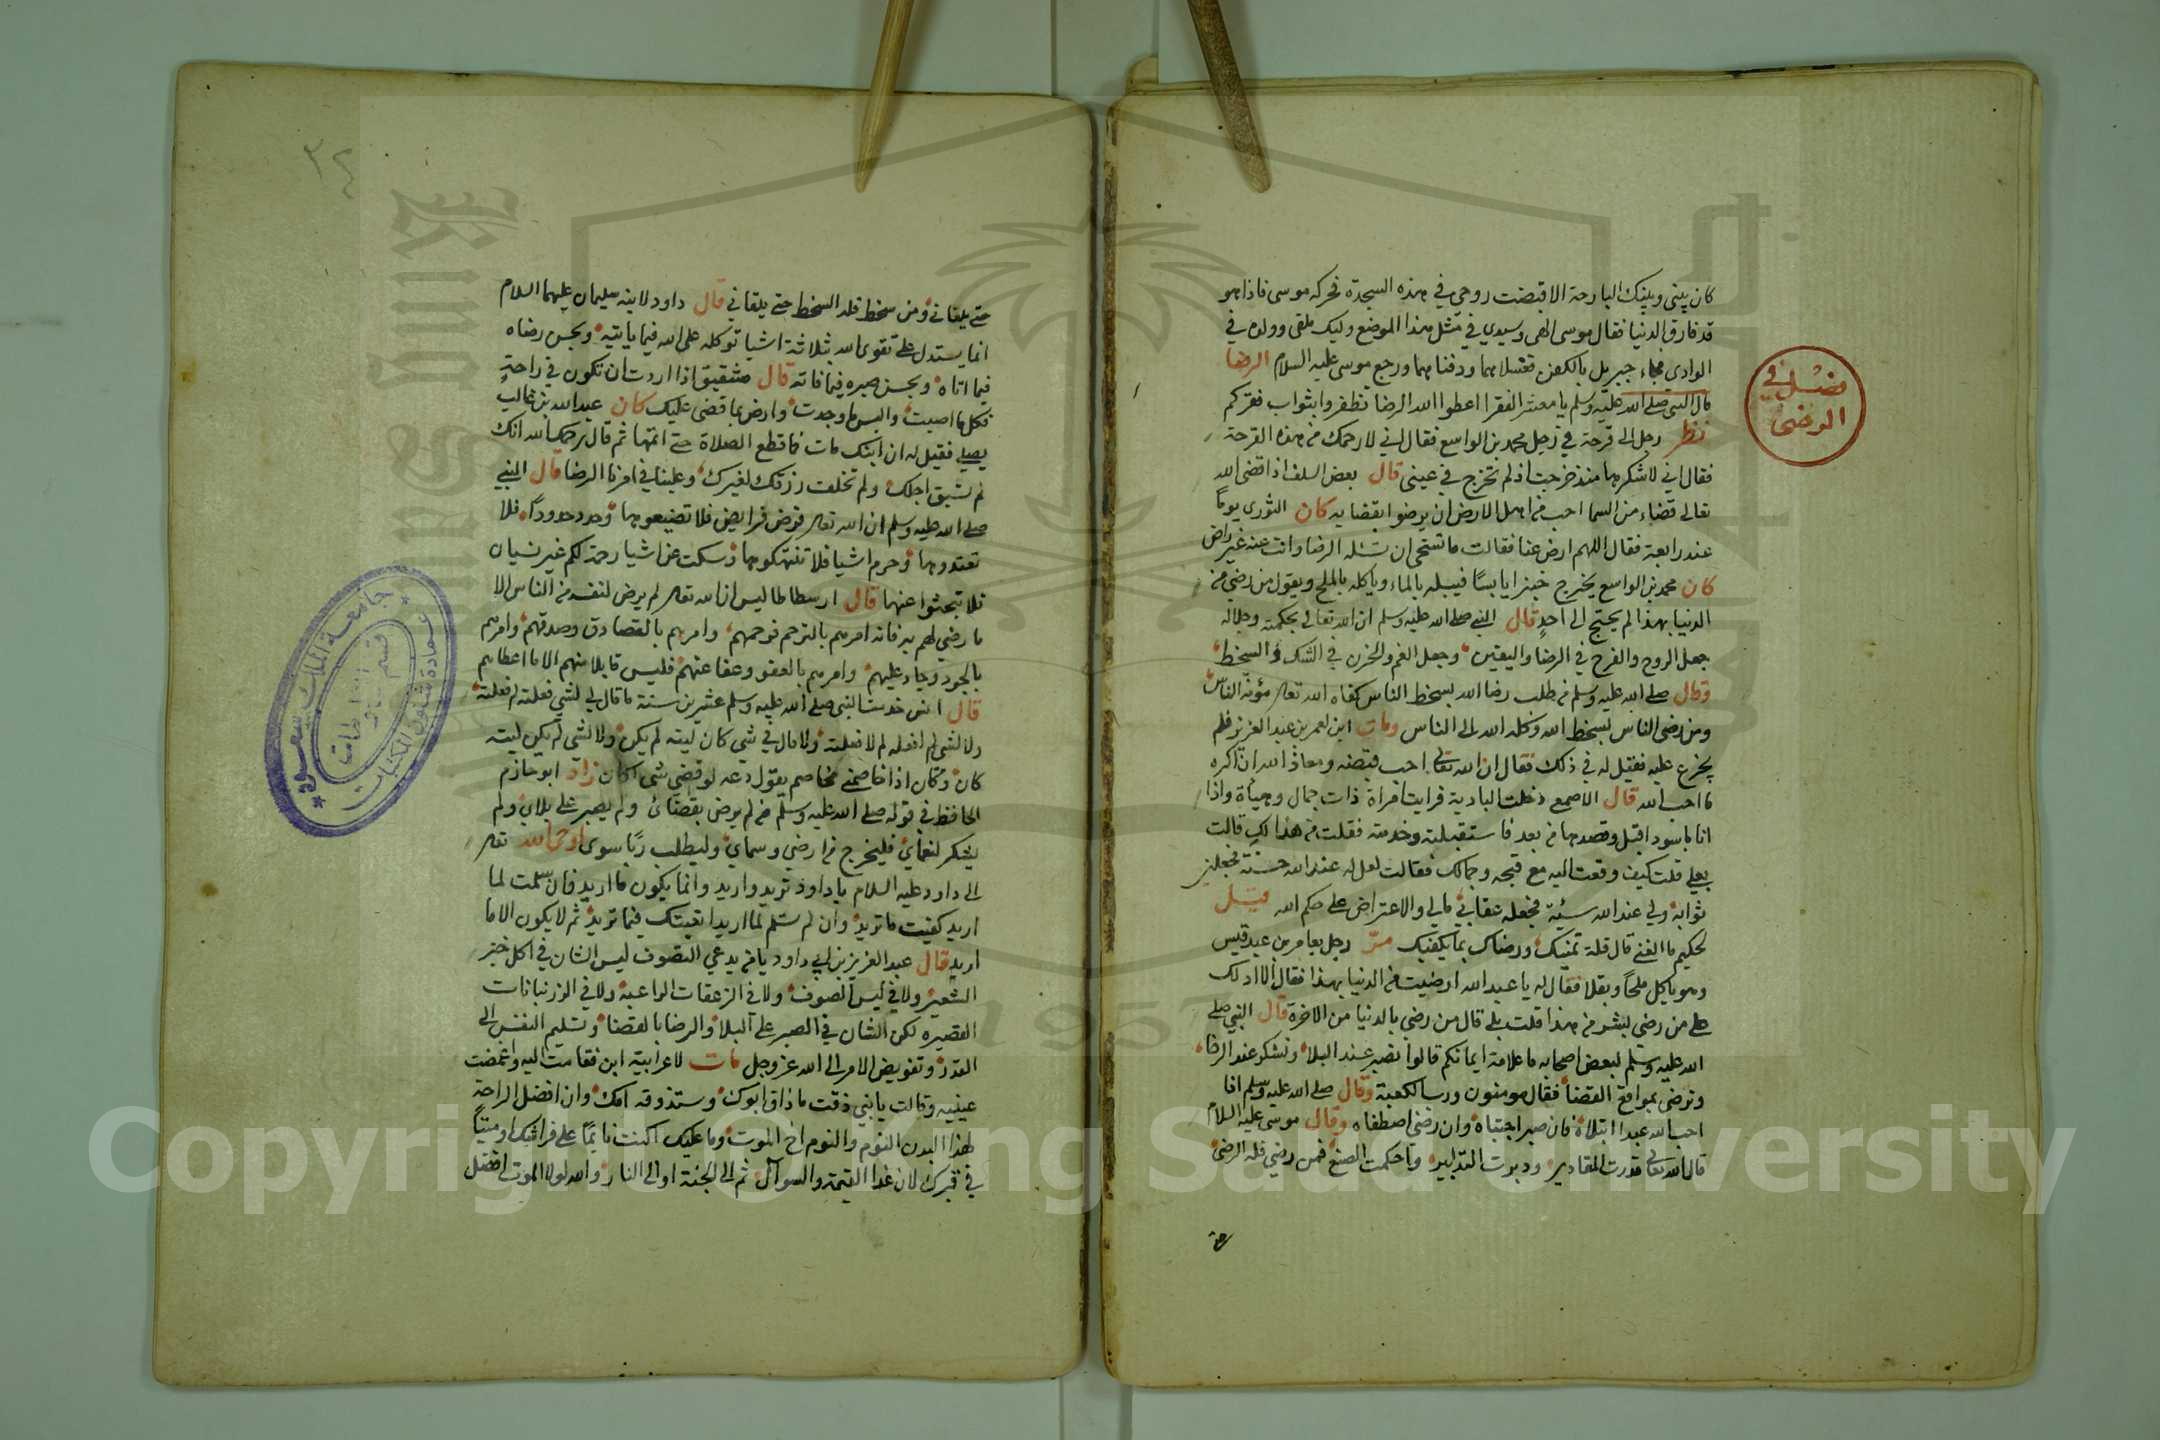 كان بيني وبينك البارحة الا قبضت روحي في هذه السجدة فحركه موسى فاذا هو
قد فارق الدنيا فقال موسى الهي وسيدي في مثل هذا الموضع وليك ملقى وولده في
الوادى فجاء جبريل بالكفن فغسلاهما ودفناهما ورجع موسى عليه السلام الرضا
فضل في
الرضى
قال النبى صلى الله عليه وسلم يا معشر الفقرا اعطوا الله الرضا تظفروا بثواب فقركم
نظر رجل الى قرحة في رجل محمد بن الواسع فقال اني لارحمك من هذه القرحة
فقال اني لاشكرها منذ خرجت اذ لم تخرج في عيني قال بعض السلف اذا قضى الله
تعالى قضاء من السما احب من اهل الارض ان يرضوا بقضايه كان الثورى يوما
عند رابعة فقال اللهم ارض عنا فقالت ما تستحي ان تسئله الرضا وانت عنه غير راض
كان محمد بن الواسع يخرج خبزا يابسا فيبله بالماء وياكله بالملح ويقول من رضي من
الدنيا بهذا لم يحتج الى احد قال النبي صلى الله عليه وسلم ان الله تعالى بحكمته وجلاله
جعل الروح والفرح في الرضا واليقين وجعل الغم والحزن في الشك والسخط
وقال صلى الله عليه وسلم من طلب رضا الله بسخط الناس كفاه الله تعالى مؤنة الناس
ومن رضى الناس بسخط الله وكله الله الى الناس ومات ابن لعمر بن عبد العزيز فلم
يجزع عليه فقيل له في ذلك فقال ان الله تعالى احب قبضه ومعاذ الله ان اكره
ما احب الله قال الاصمعي دخلت البادية فرايت امراة ذات جمال وحياة واذا
انا باسود اقبل وقصدها من بعد فاستقبلته وخدمته فقلت من هذا لك قالت
بعلي قلت كيف وقعت اليه مع قبحه وجمالك فقالت لعل له عند الله حسنة فجعلني
ثوابه ولي عند الله سيئة فجعله عقابي ما لي والاعتراض على حكم الله قيل
لحكيم ما الغنى قال قلة تمنيك ورضاك بما يكفيك مر رجل بعامر بن عبد قيس
وهو ياكل ملحا وبقلا فقال له يا عبد الله ارضيت من الدنيا بهذا فقال الا ادلك
على من رضى بشر من هذا قلت بلى قال من رضي بالدنيا من الاخرة قال النبي صلى
الله عليه وسلم لبعض اصحابه ما علامة ايمانكم قالوا نصبر عند البلا ونشكر عند الرخا
ونرضى بمواقع القضا فقال مومنون ورب الكعبة وقال صلى الله عليه وسلم اذا
احب الله عبدا ابتلاه فان صبر اجتباه وان رضى اصطفاه وقال موسى عليه السلام
قال الله تعالى قدرت المقادير ودبرت التدابير واحكمت الصنع فمن رضي فله الرضى
حتى
٣٤
حتى يلقاني ومن سخط فله السخط حتى يلقاني قال داود لابنه سليمان عليهما السلام
انما يستدل على تقوى الله بثلاثة اشيا توكله على الله فيما ياتيه وبحسن رضاه
فيما اتاه وبحسن صبره فيما فاته قال شقيق اذا اردت ان تكون في راحة
فكل ما اصبت والبس ما وجدت وارض بما قضى عليك كان عبد الله بن غالب
يصلي فقيل له ان ابنك مات فما قطع الصلاة حتى اتمها ثم قال يرحمك الله انك
لم تسبق اجلك ولم تخلف رزقك لغيرك وعلينا في امرنا الرضا قال النبي
صلى الله عليه وسلم ان الله تعالى فرض فرايض فلا تضيعوها وحد حدودا فلا
تعتدوها وحرم اشيا فلا تنتهكوها وسكت عن اشيا رحمة لكم غير نسيان
فلا تبحثوا عنها قال ارسطاطاليس ان الله تعالى لم يرض لنفسه من الناس الا
ما رضي لهم به فانه امرهم بالترحم فرحمهم وامرهم بالتصادق وصدقهم وامرهم
بالجود وجاد عليهم وامرهم بالعفو وعفا عنهم فليس قابلا منهم الا ما اعطاهم
قال انس خدمت النبي صلى الله عليه وسلم عشرين سنة ما قال لي لشي فعلته لم فعلته
ولا لشي لم افعله لم لا فعلته ولا قال في شي كان ليته لم يكن ولا لشي لم يكن ليته
كان وكان اذا خاصمني مخاصم يقول دعه لو قضي شي لكان زاد ابو حازم
الحافظ في قوله صلى الله عليه وسلم من لم يرض بقضائي ولم يصبر على بلاي ولم
يشكر لنعماي فليخرج من ارضي وسماي وليطلب ربا سوى اوحى الله تعالى
الى داود عليه السلام يا داود تريد واريد وانما يكون ما اريد فان سلمت لما
اريد كفيت ما تريد وان لم تسلم لما اريد اتعبتك فيما تريد ثم لا يكون الا ما
اريد قال عبد العزيز بن ابي داود يا من يدعي التصوف ليس الشان في اكل خبز
الشعير ولا في لبس الصوف ولا في الزعقات الواعية ولا في الزرنبانات
القصيره لكن الشان في الصبر على البلا والرضا بالقضا وتسليم النفس الى
القدر وتفويض الامر الى الله عز وجل مات لاعرابية ابن فقامت اليه واغمضت
عينيه وقالت يا بني ذقت ما ذاق ابوك وستذوقه امك وان افضل الراحة
لهذا البدن النوم والنوم اخ الموت وما عليك اكنت نايما على فراشك او ميتا
في قبرك لان غدا القيمة والسوال ثم الى الجنة او الى النار والله لولا الموت افضل
جامعة الملك سعود
عمادة شئون المكتبات
قسم المخطوطات
Copyright © King Saud University
1957